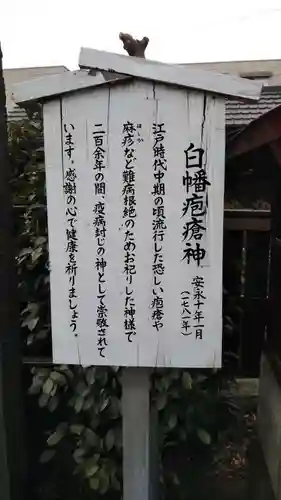 白幡疱瘡神
安永十年一月
（一七八一年）
江戸時代中期の頃流行した恐しい疱瘡や
麻疹など難病根絶のためお祀りした神様で
はしか
二百余年の間、疫病封じの神として崇敬されて
います。感謝の心で健康を祈りましょう。